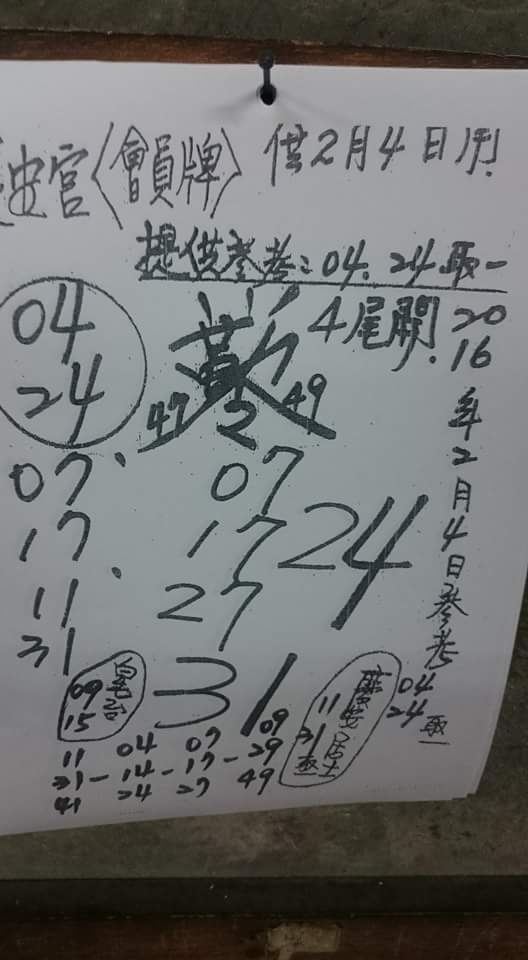 宮〈會員牌〉 供2月4日用
提供參考:04.24取一
4尾開.
2016年2月4日參考
04
24取一
04
24
47 2 49
07
17
11
31
07
17
27
24
31
09
15
11
31
09
11 04 07 29
31-14-17-
41 24 27 49